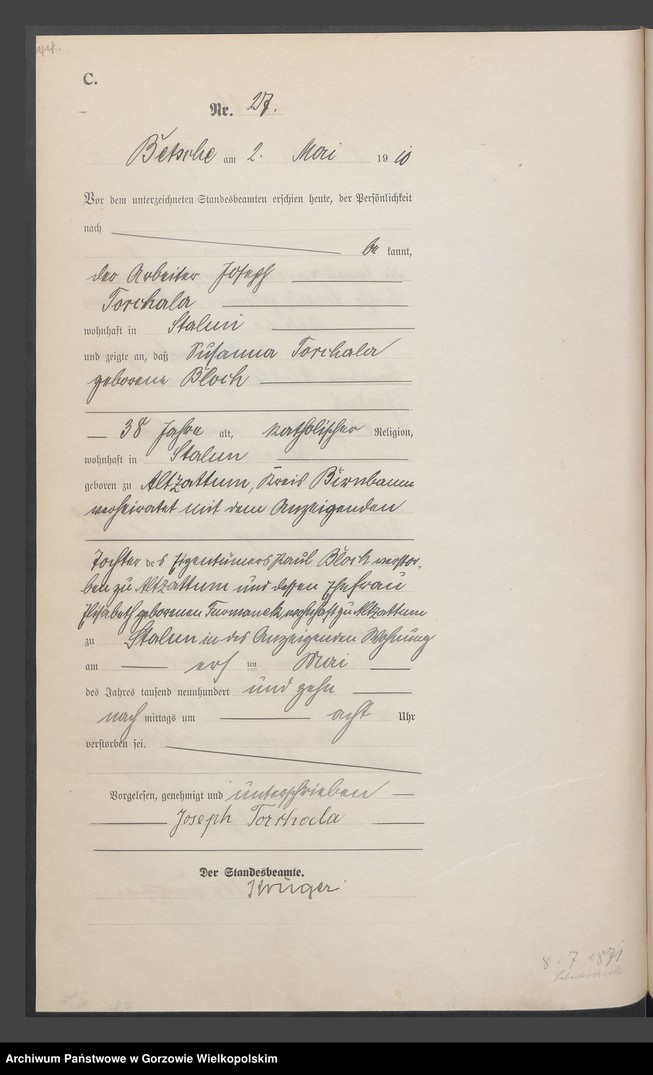 C.
Nr. 27.
Betsche am 2. Mai 1910
Vor dem unterzeichneten Standesbeamten erschien heute, der Persönlichkeit
nach
be kannt,
der Arbeiter Joseph
Torchala
wohnhaft in Stalun
und zeigte an, daß Susanna Torchala
geborene Bloch
38 Jahre alt, katholischer Religion,
wohnhaft in Stalun
geboren zu Altzattum, Kreis Birnbaum
verheiratet mit dem Anzeigenden
Tochter des Eigentümers Paul Bloch verstor-
ben zu Altzattum und dessen Ehefrau
Elisabeth geborenen wohnhaft zu Altzattum
zu Stalun in des Anzeigenden Wohnung
am ersten Mai
des Jahres tausend neunhundert und zehn
nach mittags um acht Uhr
verstorben sei.
Vorgelesen, genehmigt und unterschrieben
Joseph Torchala
Der Standesbeamte.
Krüger
8. 7 1871
Archiwum Państwowe w Gorzowie Wielkopolskim